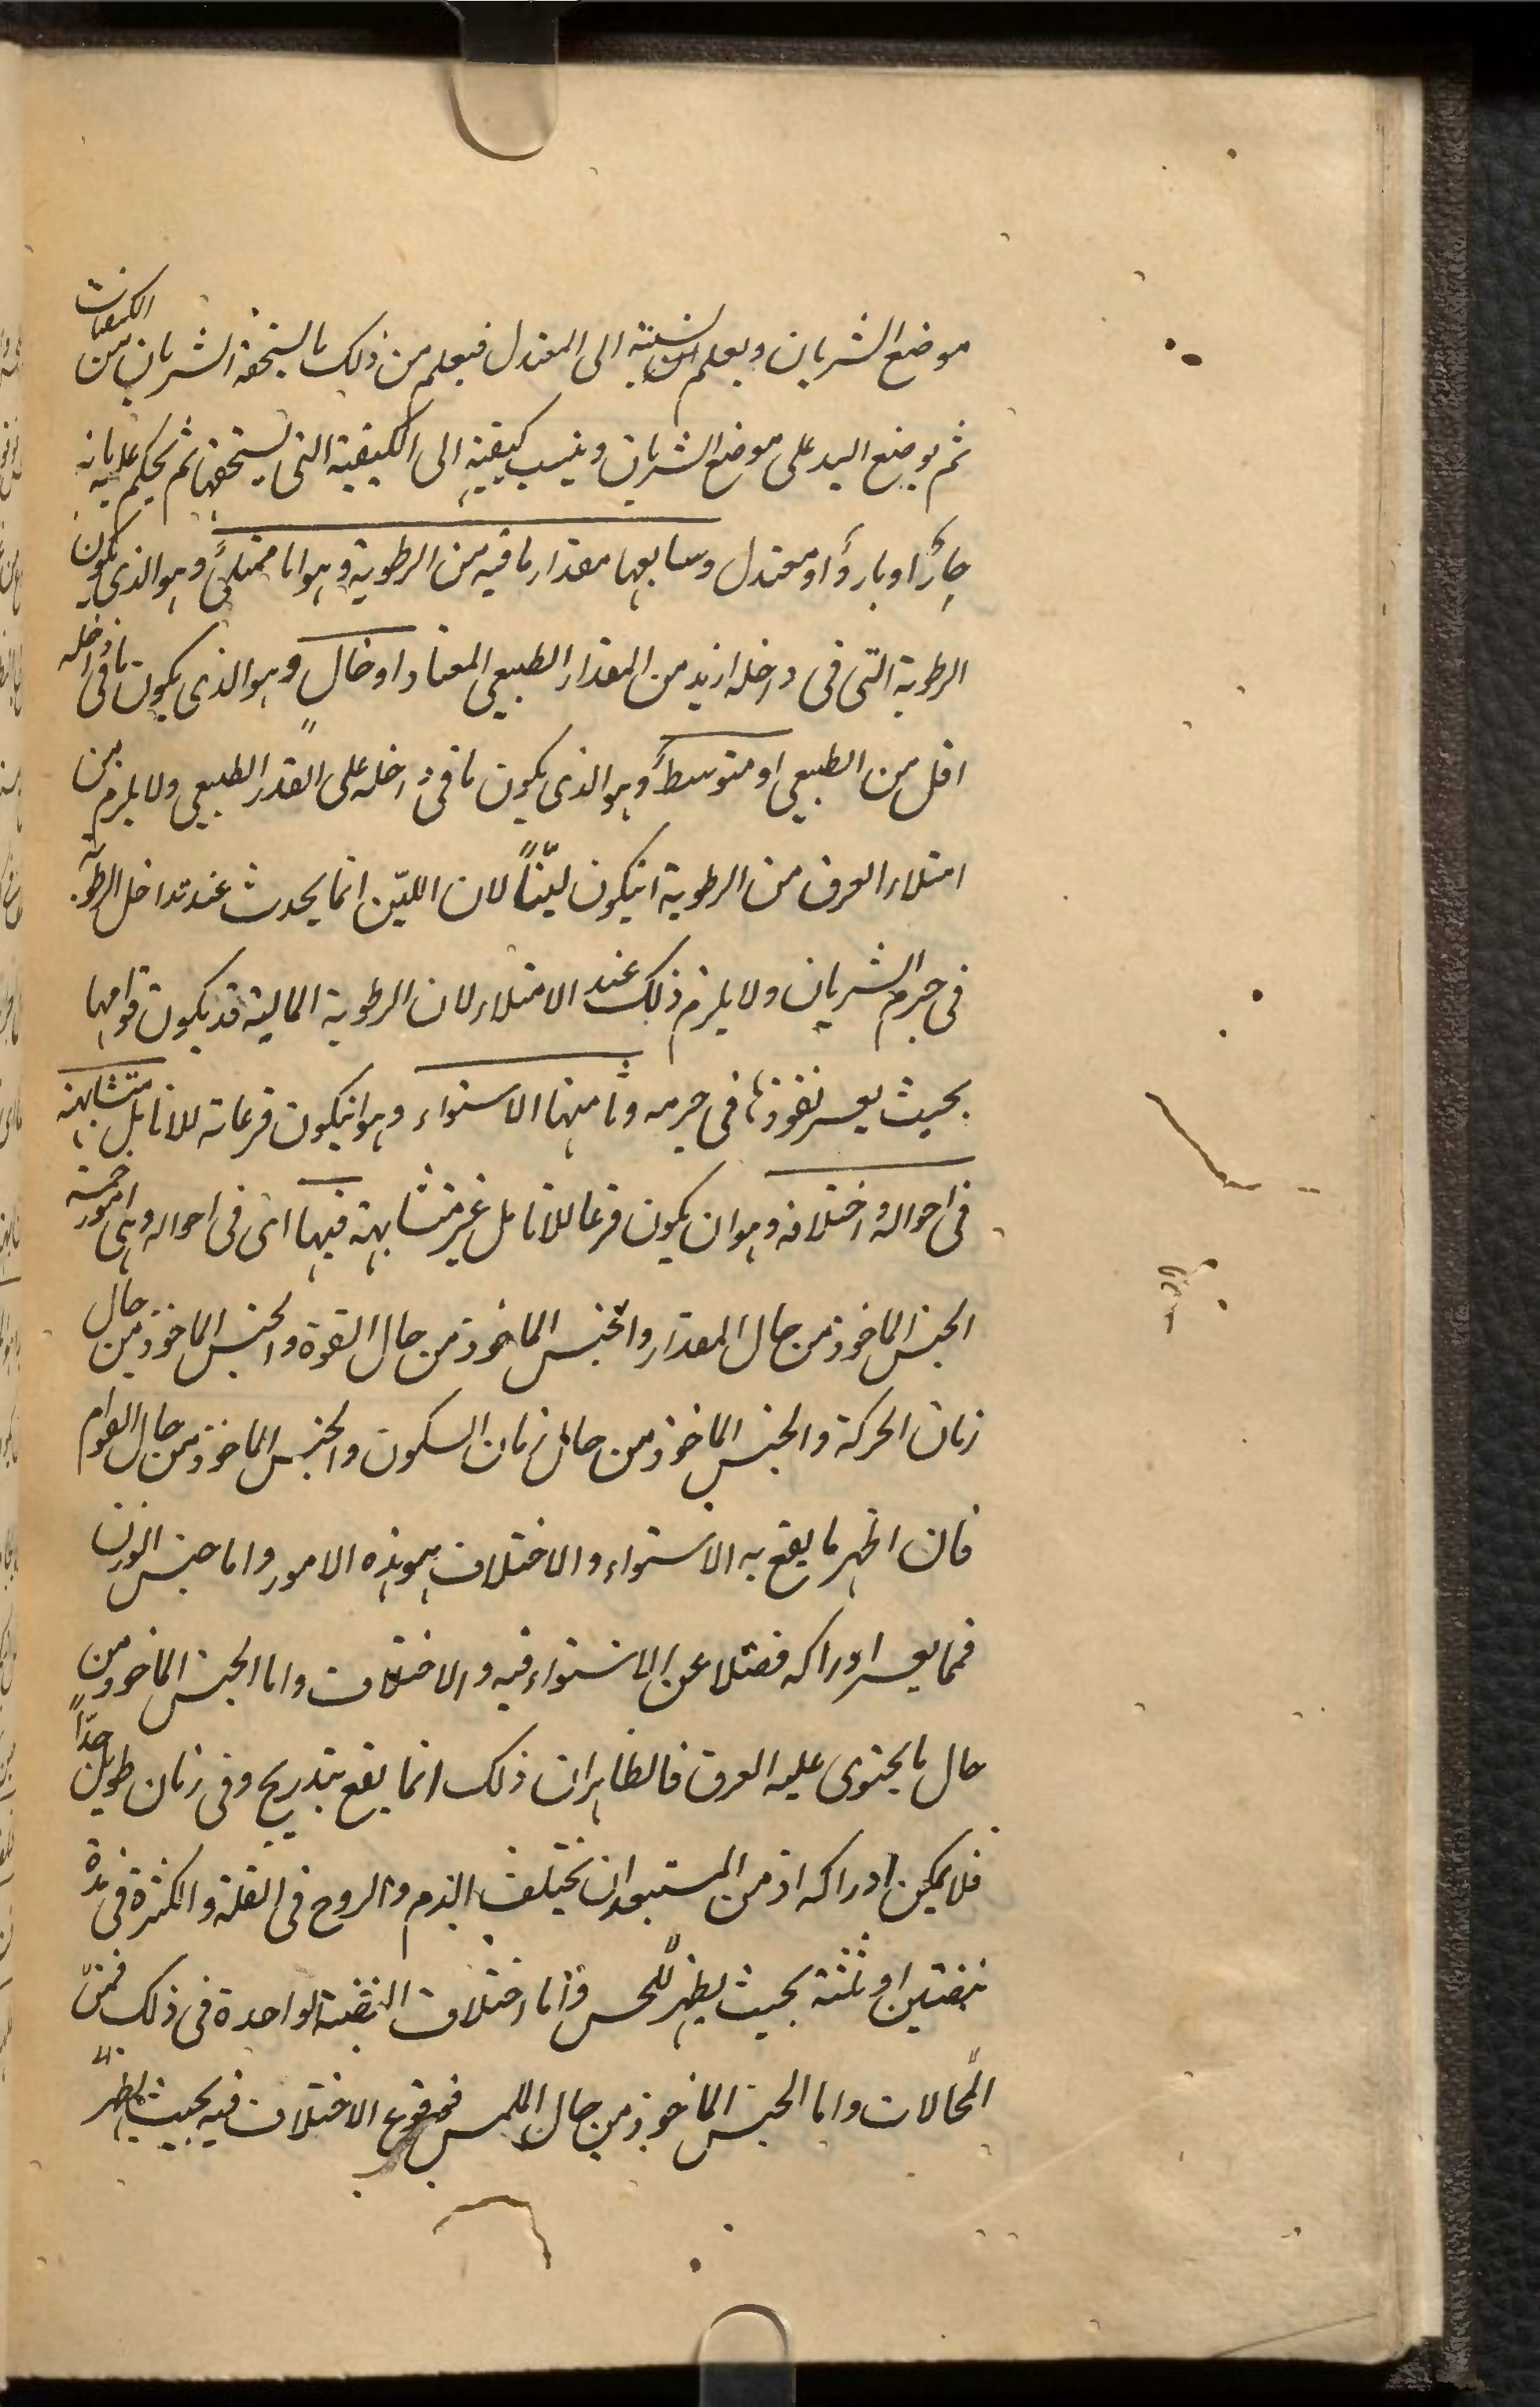 موضع الشريان ويعلم نسبته الى المعتدل فيعلم من ذلك ما يستحقه الشريان من الكيفيات
ثم يوضع اليد على موضع الشريان وينسب كيفيته الى الكيفية التى يستحقها ثم يحكم عليه بانه
حارّ او بارد او معتدل وسابعها مقدار ما فيه من الرطوبة وهو اما ممتلئ وهو الذى يكون
الرطوبة التى فى داخله ازيد من المقدار الطبيعى المعتاد او خال وهو الذى يكون ما فى داخله
اقل من الطبيعى او متوسطاً وهو الذى يكون ما فى داخله على القدر الطبيعى ولا يلزم من
امتلاء العرق من الرطوبة ان يكون ليّناً لان الليّن انما يحدث عند تداخل الرطوبة
فى جرم الشريان ولا يلزم ذلك عند الامتلاء لان الرطوبة المالية قد يكون قوامها
بحيث يعسر نفوذها فى جرمه وثامنها الاستواء وهو ان يكون قرعاته للانامل متشابهة
فى احواله واختلافه وهو ان يكون قرعا للانامل غير متشابهة فيها اى فى احواله وهى امور خمسة
الجنس الماخوذ من حال المقدار والجنس الماخوذ من حال القوة والجنس الماخوذ من حال
زمان الحركة والجنس الماخوذ من حال زمان السكون والجنس الماخوذ من حال القوام
فان اظهر ما يقع به الاستواء والاختلاف هو هذه الامور واما جنس الوزن
فمما يعسر ادراكه فضلا عن الاستواء فيه والاختلاف واما الجنس الماخوذ من
حال ما يحتوى عليه العرق فالظاهر ان ذلك انما يقع بتدريج وفى زمان طويل جدّاً
فلا يمكن ادراكه اذ من المستبعد ان يختلف الدم والروح فى القلة والكثرة فى مدة
نبضتين او ثلثة بحيث يظهر للحس واما اختلاف النبضة الواحدة فى ذلك فمن
المحالات واما الجنس الماخوذ من حال الملمس فوقوع الاختلاف فيه بحيث يظهر